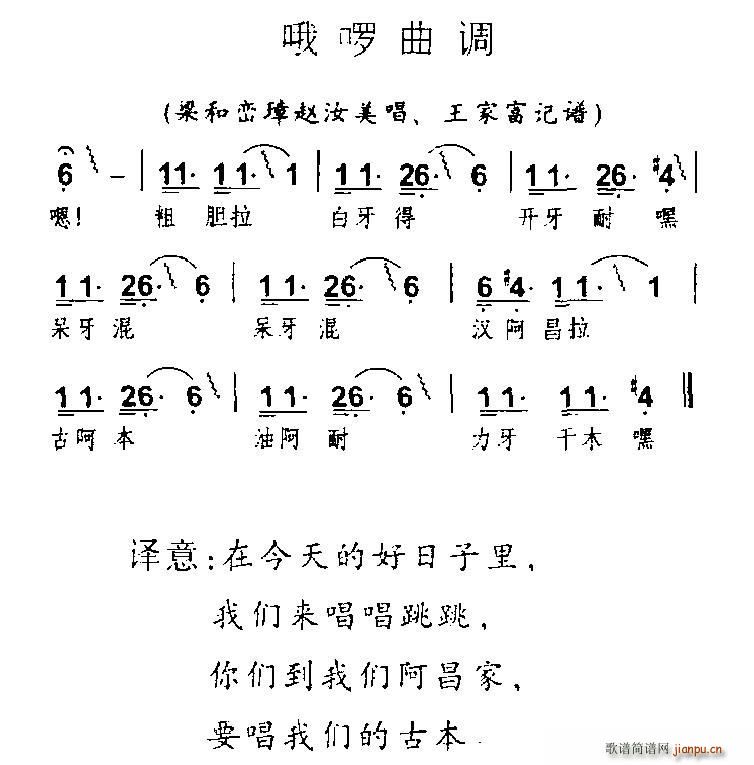 哦啰曲调
(梁和峦璋赵汝美唱、王家富记谱)
6 - | 11· 11· 1 | 11· 26· 6 | 11· 26· #4 |
嗯! 粗胆拉 白牙得 开牙耐嘿
11· 26· 6 | 11· 26· 6 | 6#4· 11· 1 |
呆牙混 呆牙混 汉阿昌拉
11· 26· 6 | 11· 26· 6 | 11· 11· #4 ‖
古阿本 油阿耐 力牙干木嘿
译意:在今天的好日子里,
我们来唱唱跳跳,
你们到我们阿昌家,
要唱我们的古本.
歌谱简谱网 jianpu.cn